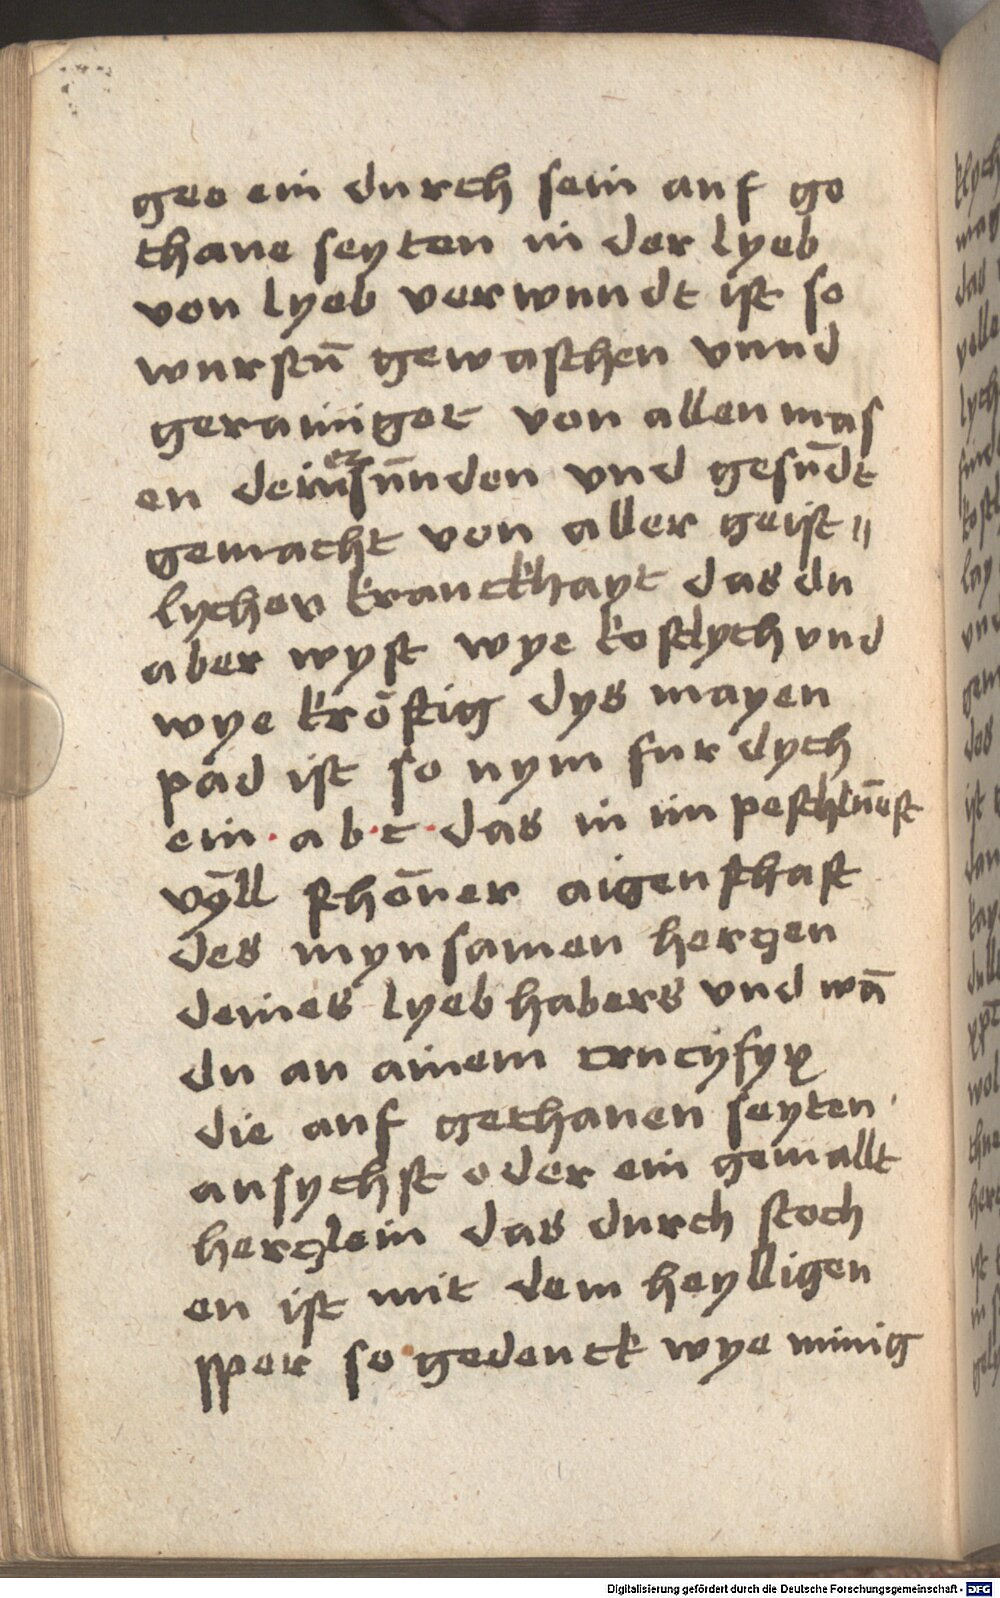 gee ein durch sein auf ge
thane seyten in der lyeb
von lyeb verwundt ist so
wurstu̅ gewaschen vnnd
gerainiget von allen mas
en deiner su̅nden vnd gesu̅dt
gemacht von aller geist〃
lycher kranckhayt das du
aber wyst wye kostlych vnd
wye krőftig dys mayen
pad ist so nym fur dych
ein · a b · c · das in im peschlu̅est
vy̅ll schőner aigenschaft
des mynsamen herczen
deines lyebhabers vnd wa̅
du an ainem crucifyx
die auf gethanen seyten
ansychst oder ein gemallt
herczlein das durch stoch
en ist mit dem heylligen
sper so gedenck wye minig
Digitalisierung gefördert durch die Deutsche Forschungsgemeinschaft - DFG